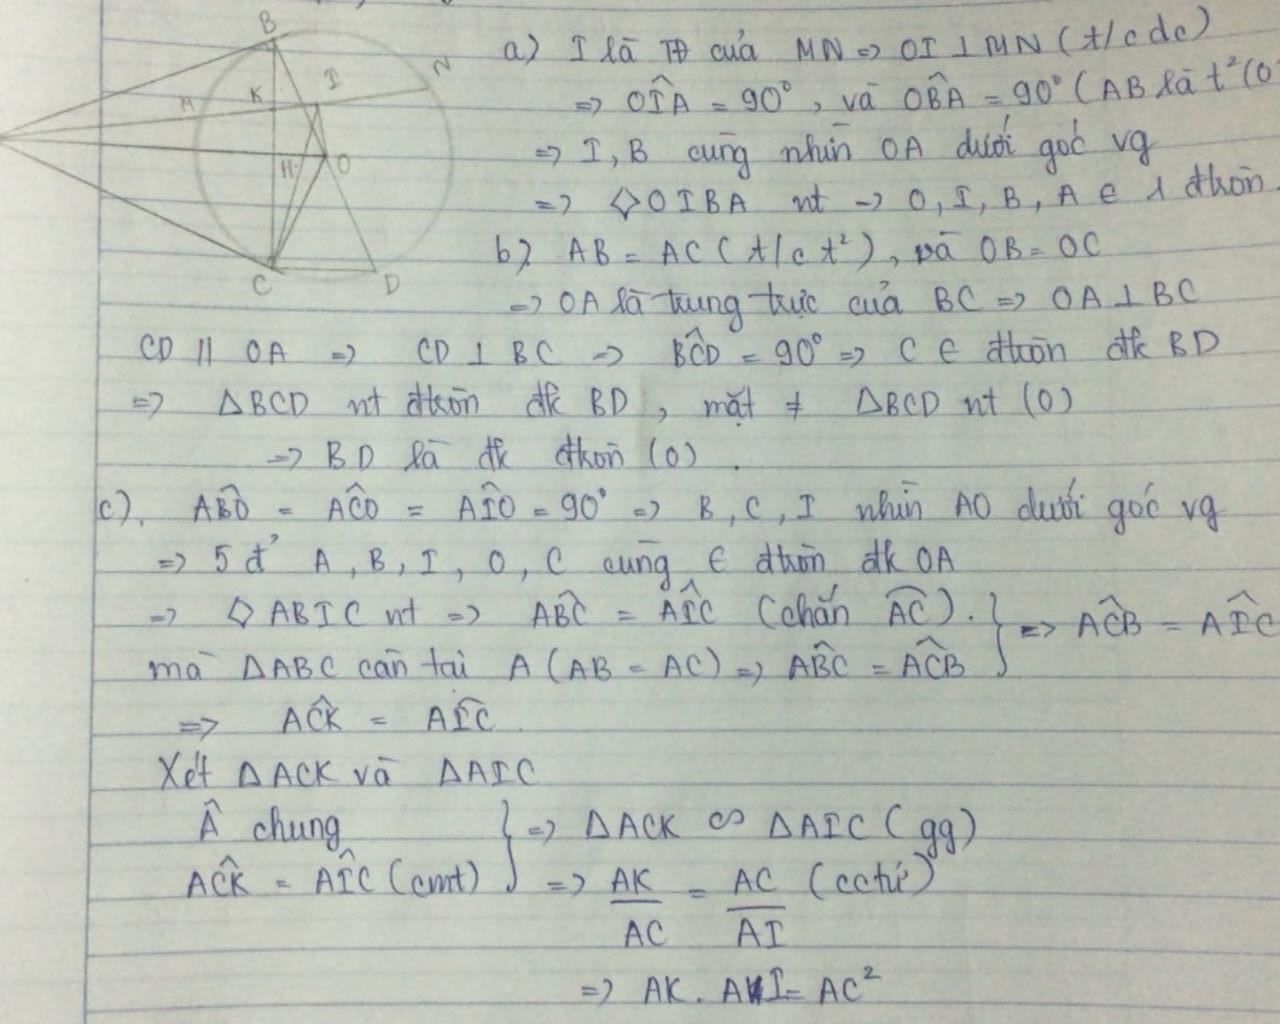 B
M K I N
H O
C D
a) I là TĐ của MN => OI ⊥ MN (t/c dc)
=> OÎA = 90°, và OB̂A = 90° (AB là t² (O
=> I, B cùng nhìn OA dưới góc vg
=> ◇OIBA nt -> O, I, B, A ∈ 1 đtròn
b) AB = AC (t/c t²), và OB = OC
=> OA là trung trực của BC => OA ⊥ BC
CD || OA => CD ⊥ BC => BĈD = 90° => C ∈ đtròn đk BD
=> ΔBCD nt đtròn đk BD, mặt ≠ ΔBCD nt (O)
=> BD là đk đtròn (O).
c). AB̂O = AĈO = AÎO = 90° => B, C, I nhìn AO dưới góc vg
=> 5 đ' A, B, I, O, C cùng ∈ đtròn đk OA
=> ◇ABIC nt => AB̂C = AÎC (chắn AC). } => AĈB = AÎC
mà ΔABC cân tại A (AB = AC) => AB̂C = AĈB
=> AĈK = AÎC.
Xét ΔACK và ΔAIC
Â chung } => ΔACK ∽ ΔAIC (gg)
AĈK = AÎC (cmt) => AK/AC = AC/AI (cctứ)
=> AK. AI = AC²